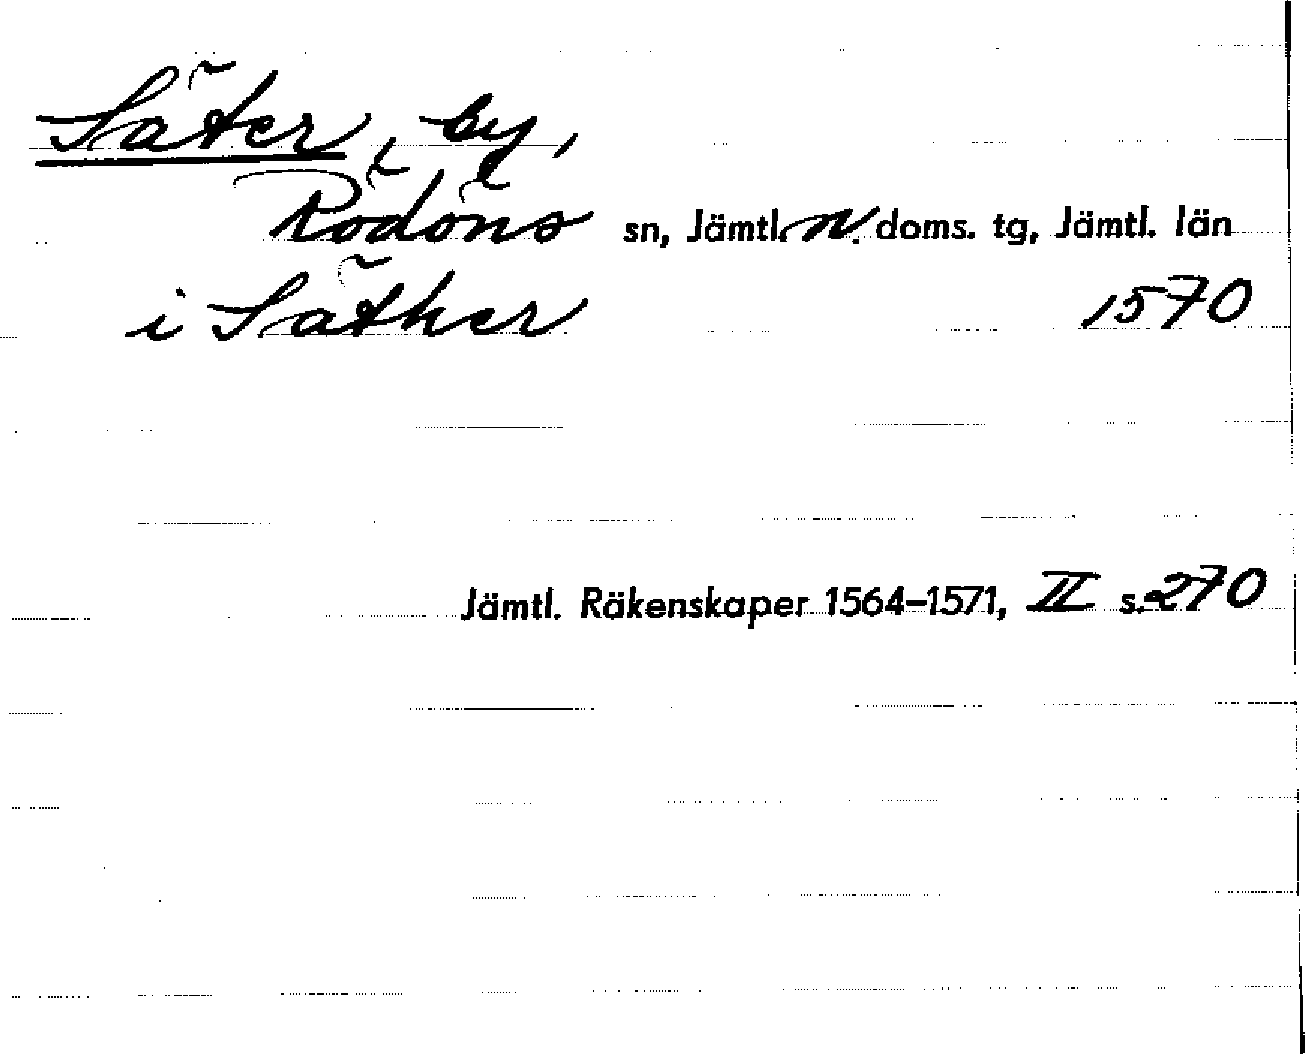 Säter, by,
Rödöns sn, Jämtl. N. doms. tg, Jämtl. län
i Säther 1570
Jämtl. Räkenskaper 1564–1571, II s. 270